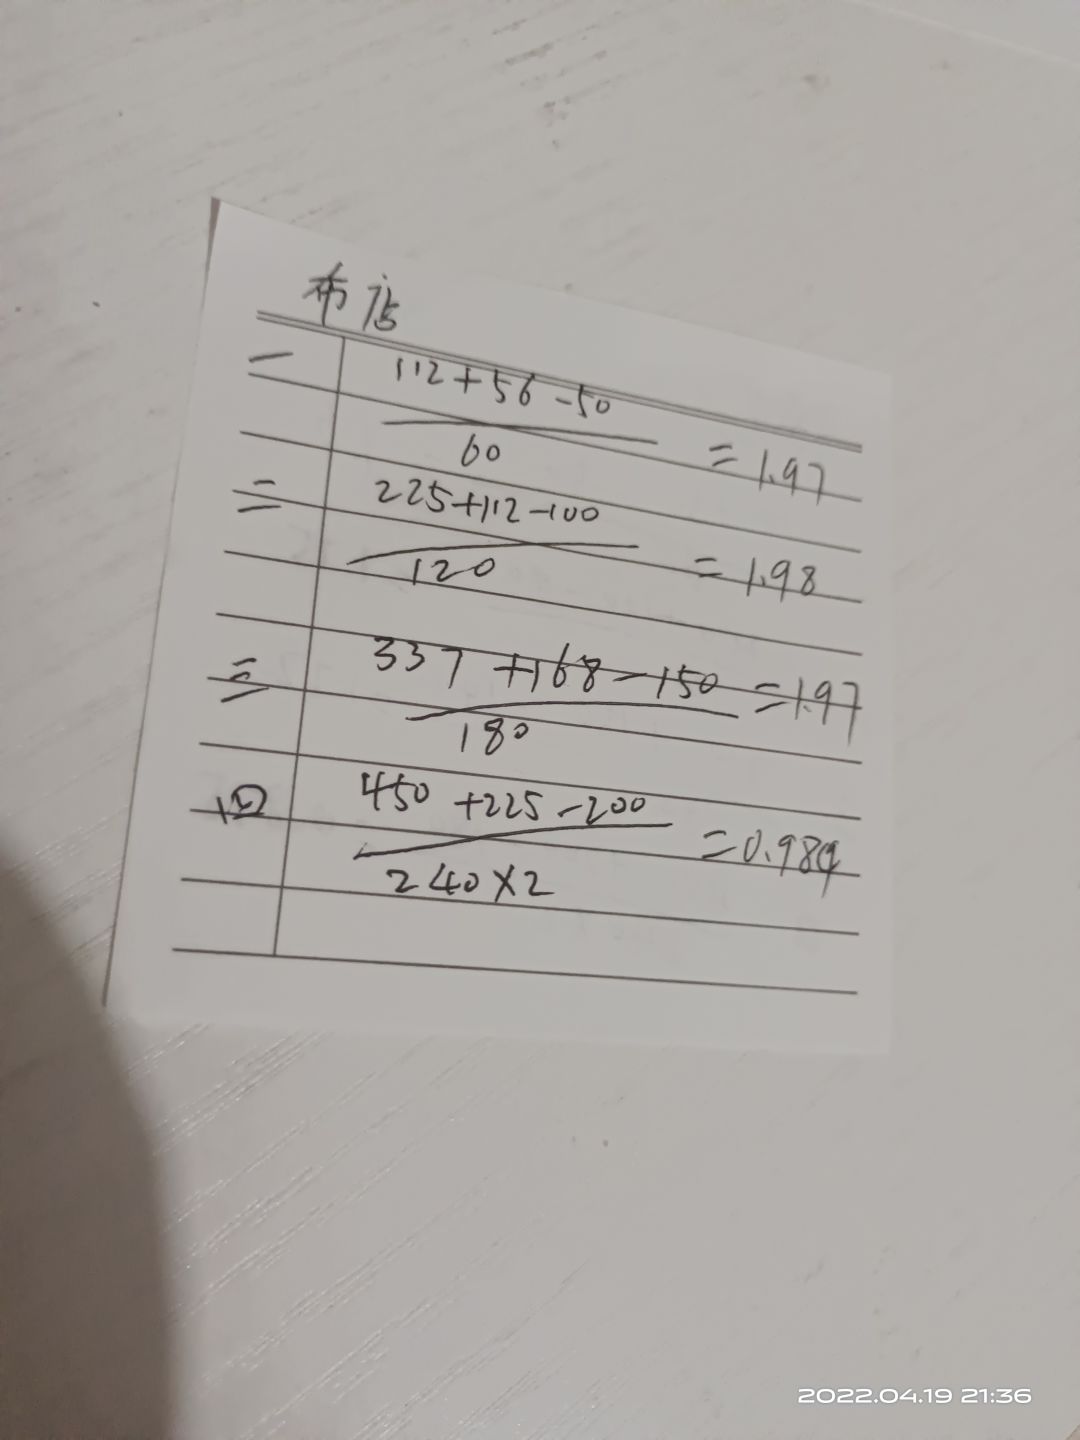 布店
一 112+56-50
60 =1.97
二 225+112-100
120 =1.98
三 337+168-150 =1.97
180
四 450+225-200
240×2 =0.989
2022.04.19 21:36